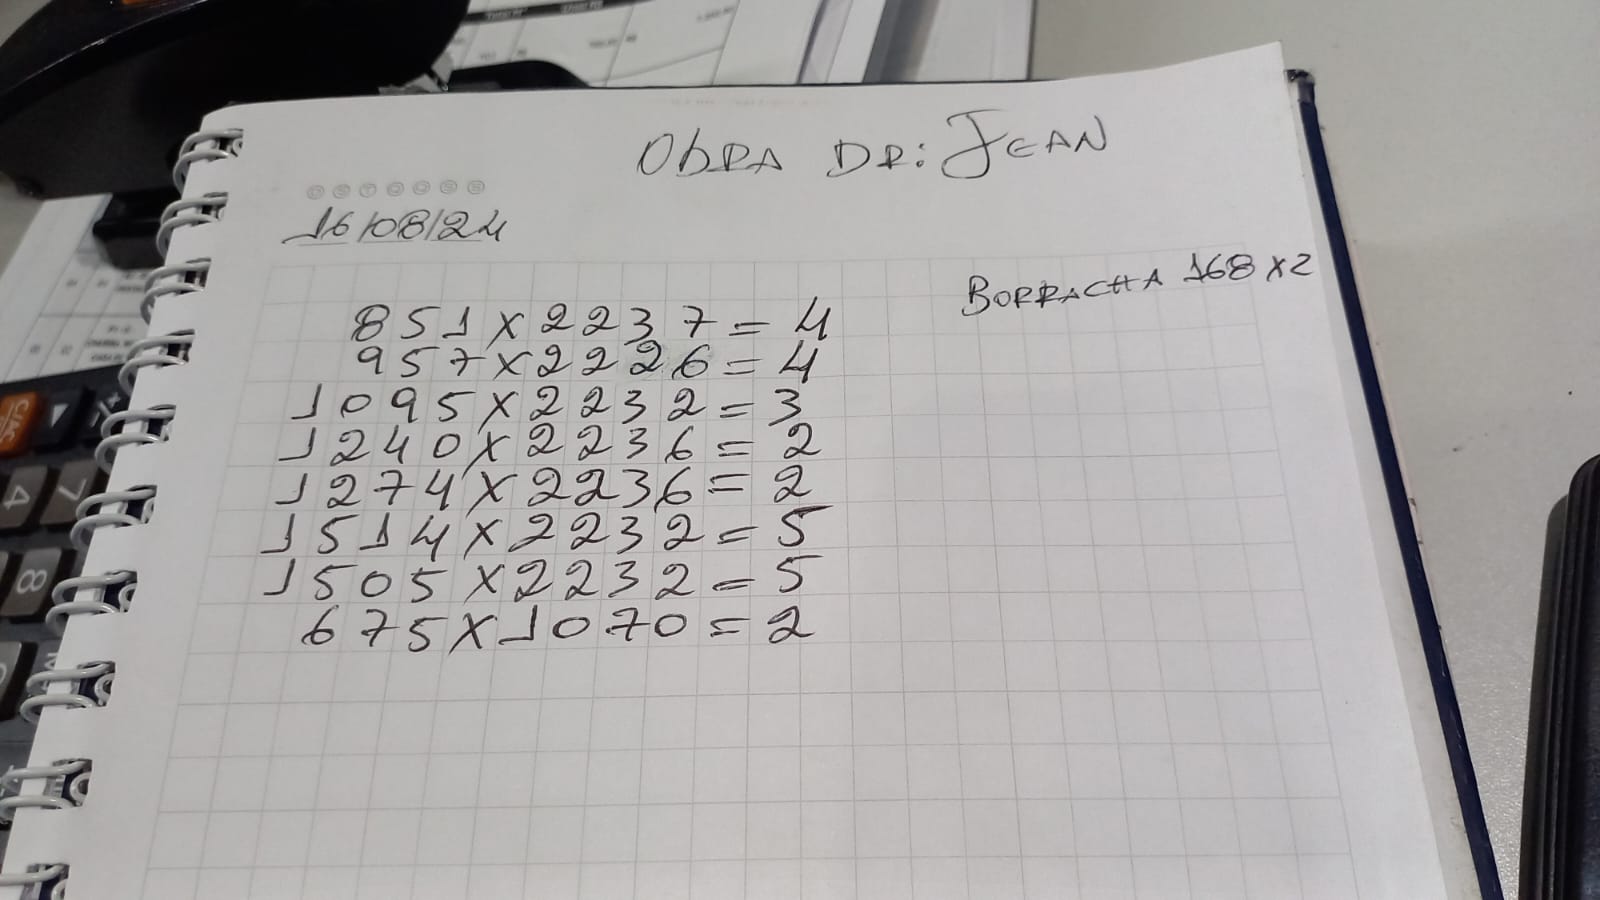 OBRA DR: JEAN
D S T Q Q S S
16/08/24
BORRACHA 168 x 2
851 x 2237 = 4
957 x 2226 = 4
1095 x 2232 = 3
1240 x 2236 = 2
1274 x 2236 = 2
1514 x 2232 = 5
1505 x 2232 = 5
675 x 1070 = 2
CA/AC
7
4
8